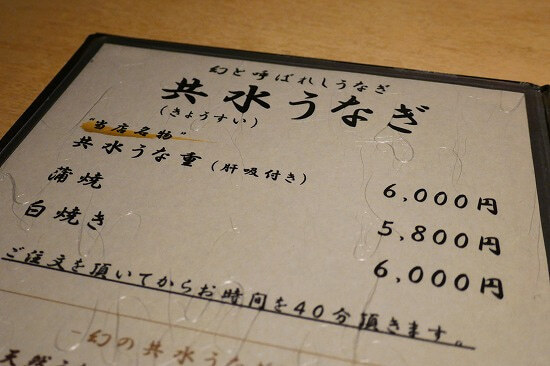 幻と呼ばれしうなぎ
共水うなぎ
(きょうすい)
"当店名物"
共水うな重(肝吸付き) 6,000円
蒲焼 5,800円
白焼き 6,000円
ご注文を頂いてからお時間を40分頂きます。
-幻の共水うな
天然う